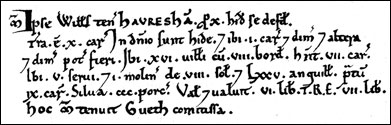 ꝳ Ipse Wills ten HAVRESHĀ. ꝓ x. hid se defd.
Tra. ē. x. car. In dnio sunt hide. 7 ibi. i. car 7 dim 7 altera
7 dim pot fieri. Ibi. xvi. uilli cū. viii. bord. hnt. vii. car.
Ibi. v. serui. 7 i. molin de. viii. sol. 7 lxxv. anguill. ptū
ix. car. Silua. ccc. porc. Val 7 ualuit. vi. lib. T.R.E. vii. lib.
hoc ꝳ tenuit Gueth comitissa.